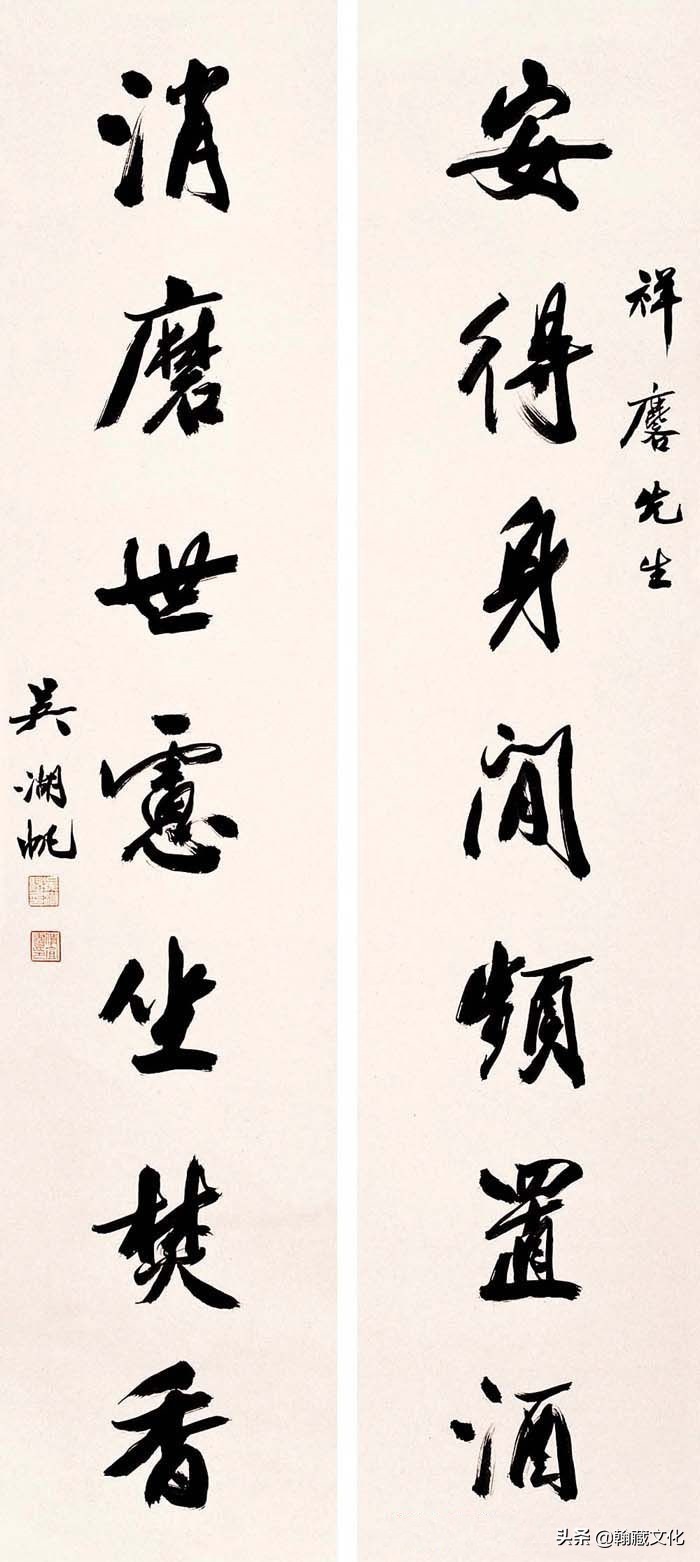 安得身閒頻置酒
祥麐先生
消磨世慮坐焚香
吴湖帆
头条 @翰藏文化